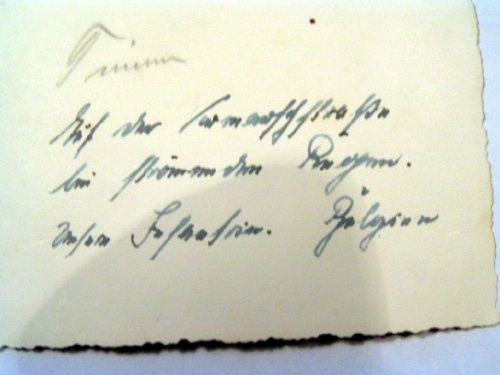 Timm
Auf der Vormarschstraße
bei strömenden Regen.
Unsere Infanterie. Belgien